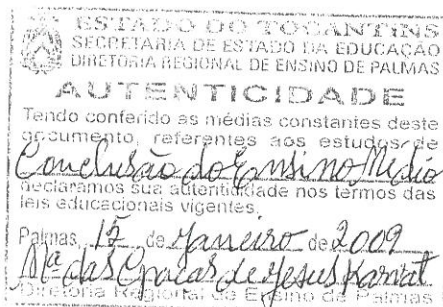 ESTADO DO TOCANTINS
SECRETARIA DE ESTADO DA EDUCAÇÃO
DIRETORIA REGIONAL DE ENSINO DE PALMAS
AUTENTICIDADE
Tendo conferido as médias constantes deste
documento, referentes aos estudos de
Conclusão do Ensino Médio
declaramos sua autenticidade nos termos das
leis educacionais vigentes.
Palmas, 12 de Janeiro de 2009
Mª das Graças de Jesus
Diretoria Regional de Ensino de Palmas